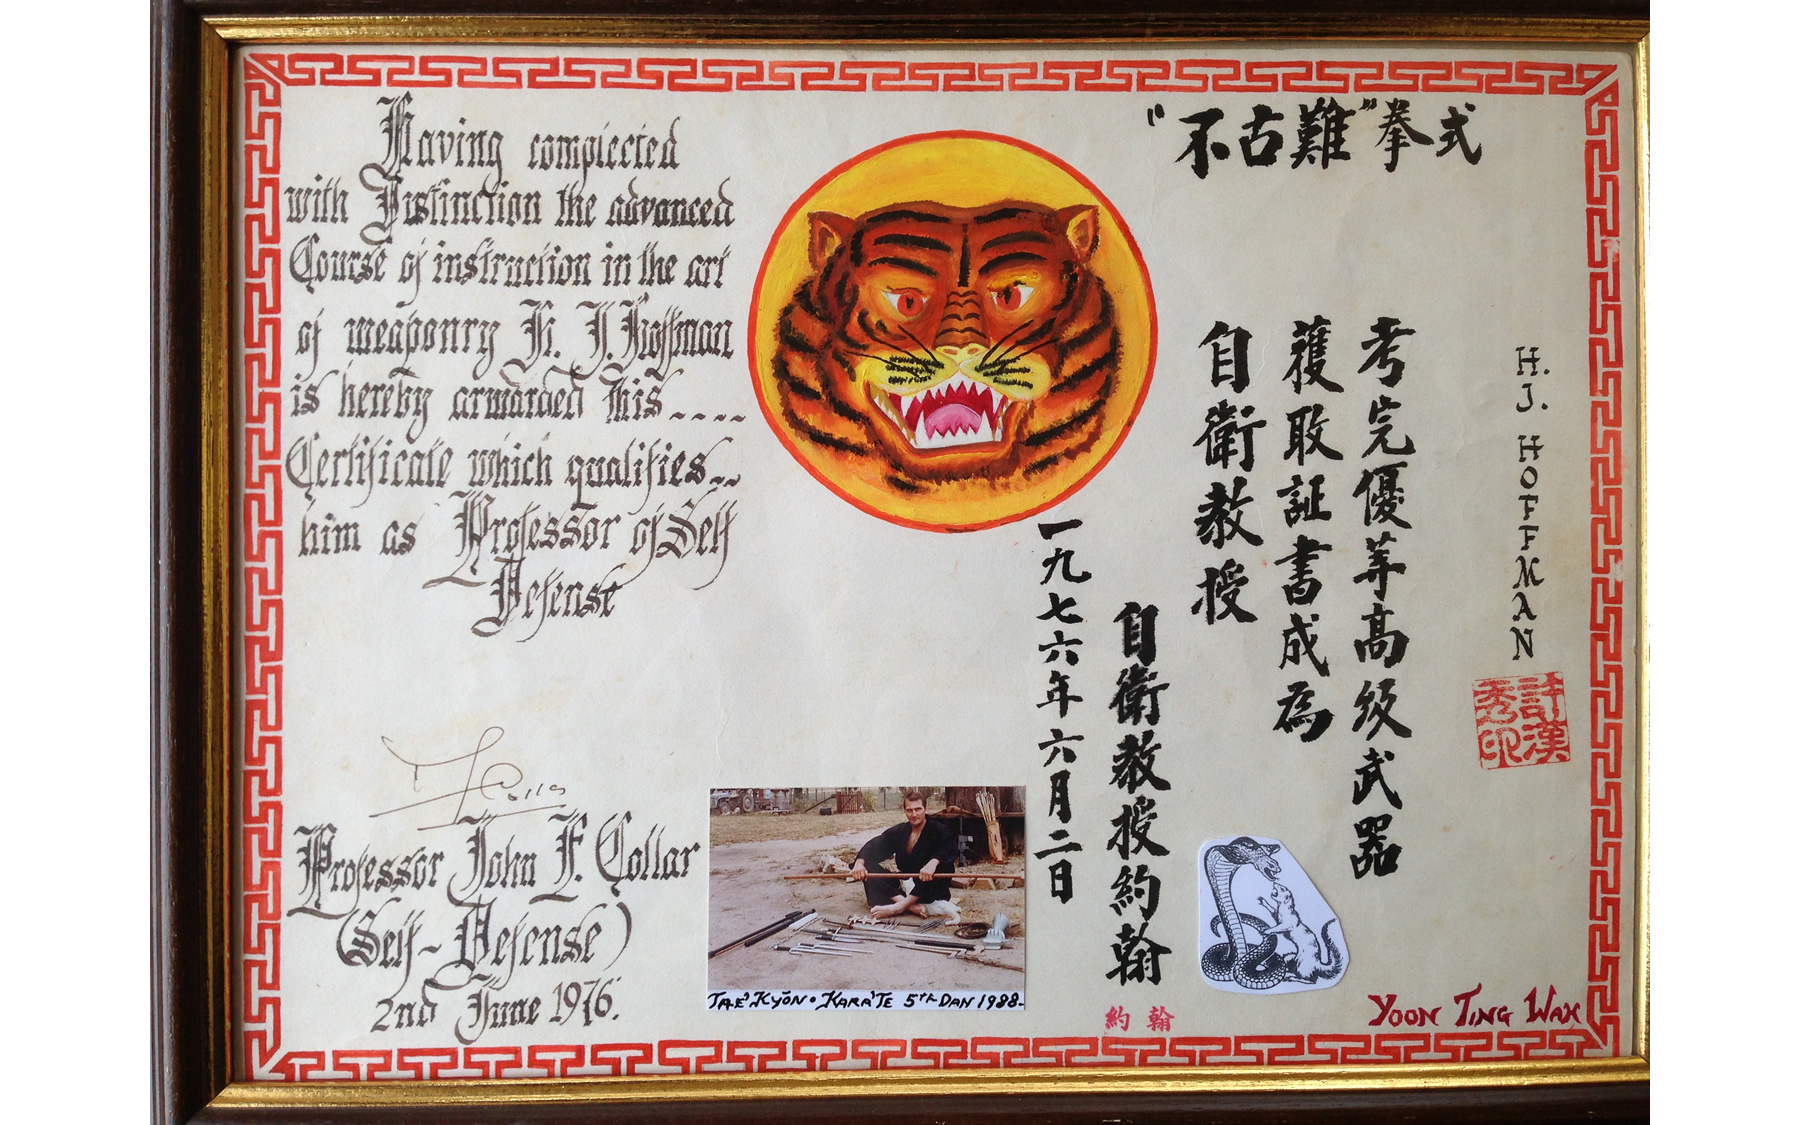 Having complected
with Distinction the advanced
Course of instruction in the art
of weaponry H. J. Hoffman
is hereby arwarded this....
Certificate which qualifies..
him as Professor of Self
Defense
Professor John F. Collar
(Self-Defense)
2nd June 1976.
TAE'KYŌN. KARA'TE 5th DAN 1988.
"不古難"拳式
H. J. HOFFMAN
考完優等高级武器
獲取証書成為
自衛教授
自衛教授約翰
一九七六年六月二日
約翰
YOON TING WAH